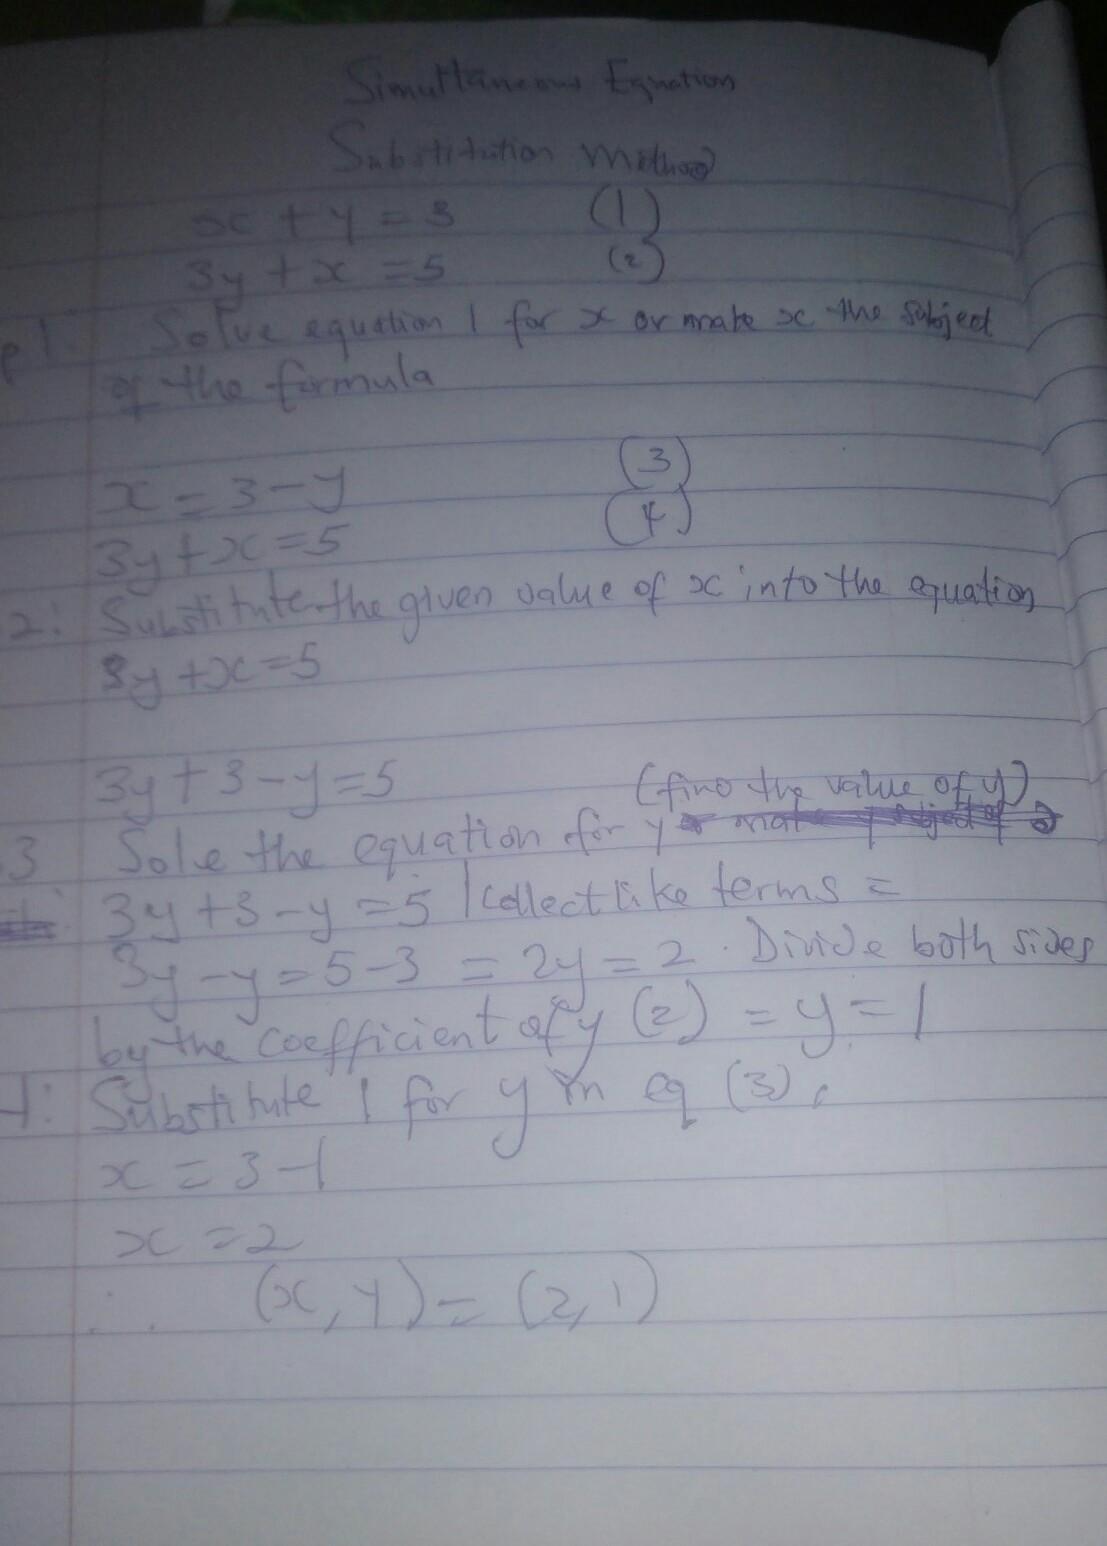 Simultaneous Equation
Substitution method
x + y = 3 (1)
3y + x = 5 (2)
p 1 Solve equation 1 for x or make x the subject
of the formula
x = 3 - y (3)
3y + x = 5 (4)
2: Substitute the given value of x into the equation
3y + x = 5
3y + 3 - y = 5
(find the value of y)
3 Sole the equation for y
3y + 3 - y = 5 | Collect like terms =
3y - y = 5 - 3 = 2y = 2 . Divide both sides
by the coefficient of y (2) = y = 1
4: Substitute 1 for y in eq (3).
x = 3 - 1
x = 2
∴ (x, y) = (2, 1)